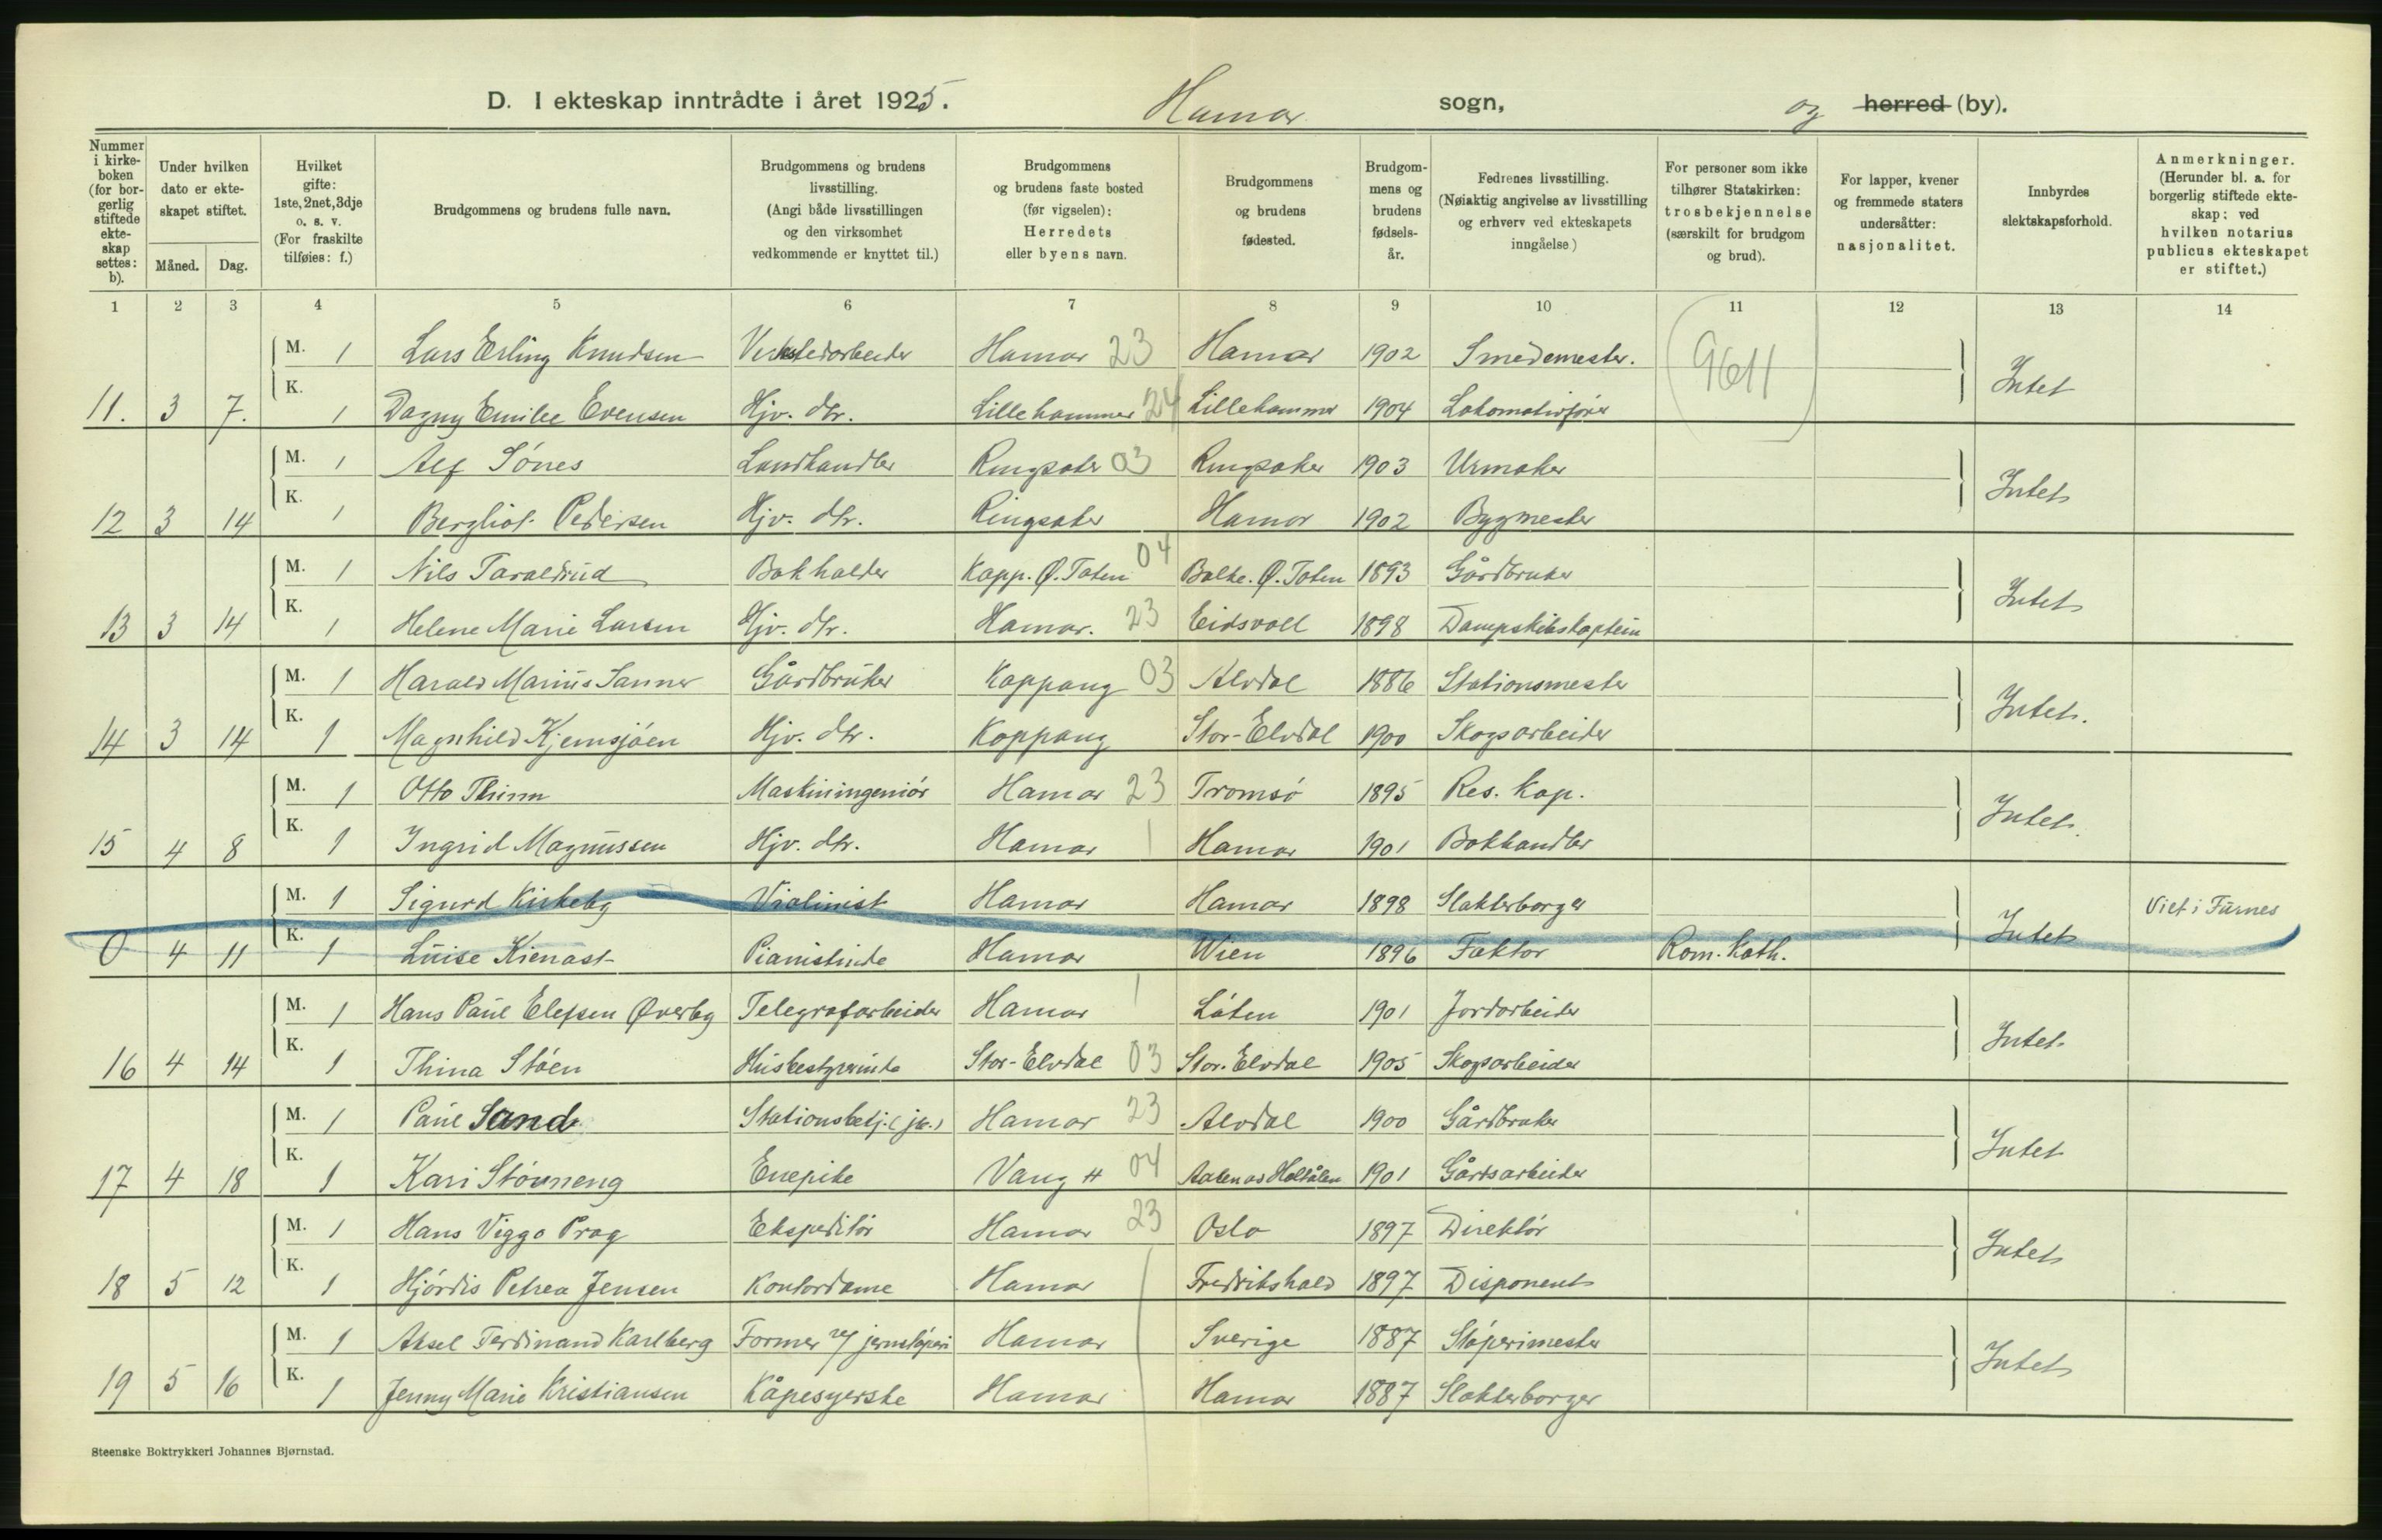 D. I ekteskap inntrådte i året 1925. Hamar sogn, og herred (by).
Nummer i kirkeboken (for borgerlig stiftede ekteskap settes: b).
Under hvilken dato er ekteskapet stiftet.
Måned. Dag.
Hvilket gifte: 1ste, 2net, 3dje o. s. v. (For fraskilte tilføies: f.)
Brudgommens og brudens fulle navn.
Brudgommens og brudens livsstilling. (Angi både livsstillingen og den virksomhet vedkommende er knyttet til.)
Brudgommens og brudens faste bosted (før vigselen): Herredets eller byens navn.
Brudgommens og brudens fødested.
Brudgommens og brudens fødselsår.
Fedrenes livsstilling. (Nøiaktig angivelse av livsstilling og erhverv ved ekteskapets inngåelse)
For personer som ikke tilhører Statskirken: trosbekjennelse (særskilt for brudgom og brud).
For lapper, kvener og fremmede staters undersåtter: nasjonalitet.
Innbyrdes slektskapsforhold.
Anmerkninger. (Herunder bl. a. for borgerlig stiftede ekteskap; ved hvilken notarius publicus ekteskapet er stiftet.)
1 2 3 4 5 6 7 8 9 10 11 12 13 14
M. 1 Lars Erling Knudsen Verkstedarbeider Hamar 23 Hamar 1902 Smedemester. 9611
11. 3 7. K. 1 Dagny Emilie Evensen Hjv. dtr. Lillehammer 24 Lillehammer 1904 Lokomotivfører Intet
M. 1 Alf Sönes Landhandler Ringsaker 03 Ringsaker 1903 Urmaker
12 3 14 K. 1 Bergliot Pedersen Hjv. dtr. Ringsaker Hamar 1902 Bygmester Intet
M. 1 Nils Taraldrud Bokholder Kapp. Ø. Toten 04 Balke. Ø. Toten 1893 Gårdbruker
13 3 14 K. 1 Helene Marie Larsen Hjv. dtr. Hamar. 23 Eidsvoll 1898 Dampskibskaptein Intet
M. 1 Harald Marius Sanner Gårdbruker Koppang 03 Alvdal 1886 Stationsmester
14 3 14 K. 1 Magnhild Kjemsjöen Hjv. dtr. Koppang Stor-Elvdal 1900 Skogsarbeider Intet.
M. 1 Otto Thinn Maskiningeniör Hamar 23 Tromsö 1895 Res. Kap.
15 4 8 K. 1 Ingrid Magnussen Hjv. dtr. Hamar Hamar 1901 Bokhandler Intet.
M. 1 Sigurd Kirkeby Violinist Hamar Hamar 1898 Slakterborger Viet i Furnes
0 4 11 K. 1 Luise Kienast Pianistinde Hamar Wien 1896 Faktor Rom. Kath. Intet
M. 1 Hans Paul Elefsen Øverby Telegrafarbeider Hamar Löten 1901 Jordarbeider
16 4 14 K. 1 Thina Stöen Husbestyrerinde Stor-Elvdal 03 Stor-Elvdal 1905 Skogsarbeider Intet.
M. 1 Paul Sand Stationsbetj. (jb.) Hamar 23 Alvdal 1900 Gårdbruker
17 4 18 K. 1 Kari Störmeng Enepike Vang H 04 Aalen as Holtålen 1901 Gårdsarbeider Intet
M. 1 Hans Viggo Prag Ekspeditör Hamar 23 Oslo 1897 Direktör
18 5 12 K. 1 Hjördis Petrea Jensen Kontordame Hamar Fredrikshald 1897 Disponent Intet
M. 1 Aksel Ferdinand Karlberg Former v/ jernstöperi Hamar Sverige 1887 Stöperimester
19 5 16 K. 1 Jenny Marie Kristiansen Kåpesyerske Hamar Hamar 1887 Slakterborger Intet
Steenske Boktrykkeri Johannes Bjørnstad.